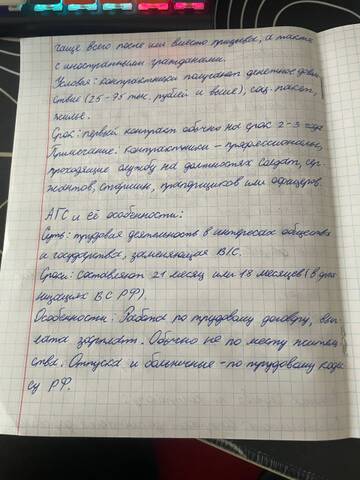 чаще всего после или вместо призыва, а также
с иностранными гражданами.
Условия: контрактники получают денежное доволь
ствие (25-75 тыс. рублей и выше), соц. пакет,
жилье.
Срок: первый контракт обычно на срок 2-3 года
Примечание: контрактники - профессионалы,
проходящие службу на должностях солдат, сер
жантов, старшин, прапорщиков или офицеров
АГС и её особенности:
Суть: трудовая деятельность в интересах общества
и государства, заменяющая В/С.
Сроки: составляют 21 месяц или 18 месяцев (в орга
низациях ВС РФ).
Особенности: Работа по трудовому договру, вып
лата зарплат. Обычно не по месту житель
ства. Отпуска и больничные - по трудовому кодек
су РФ.